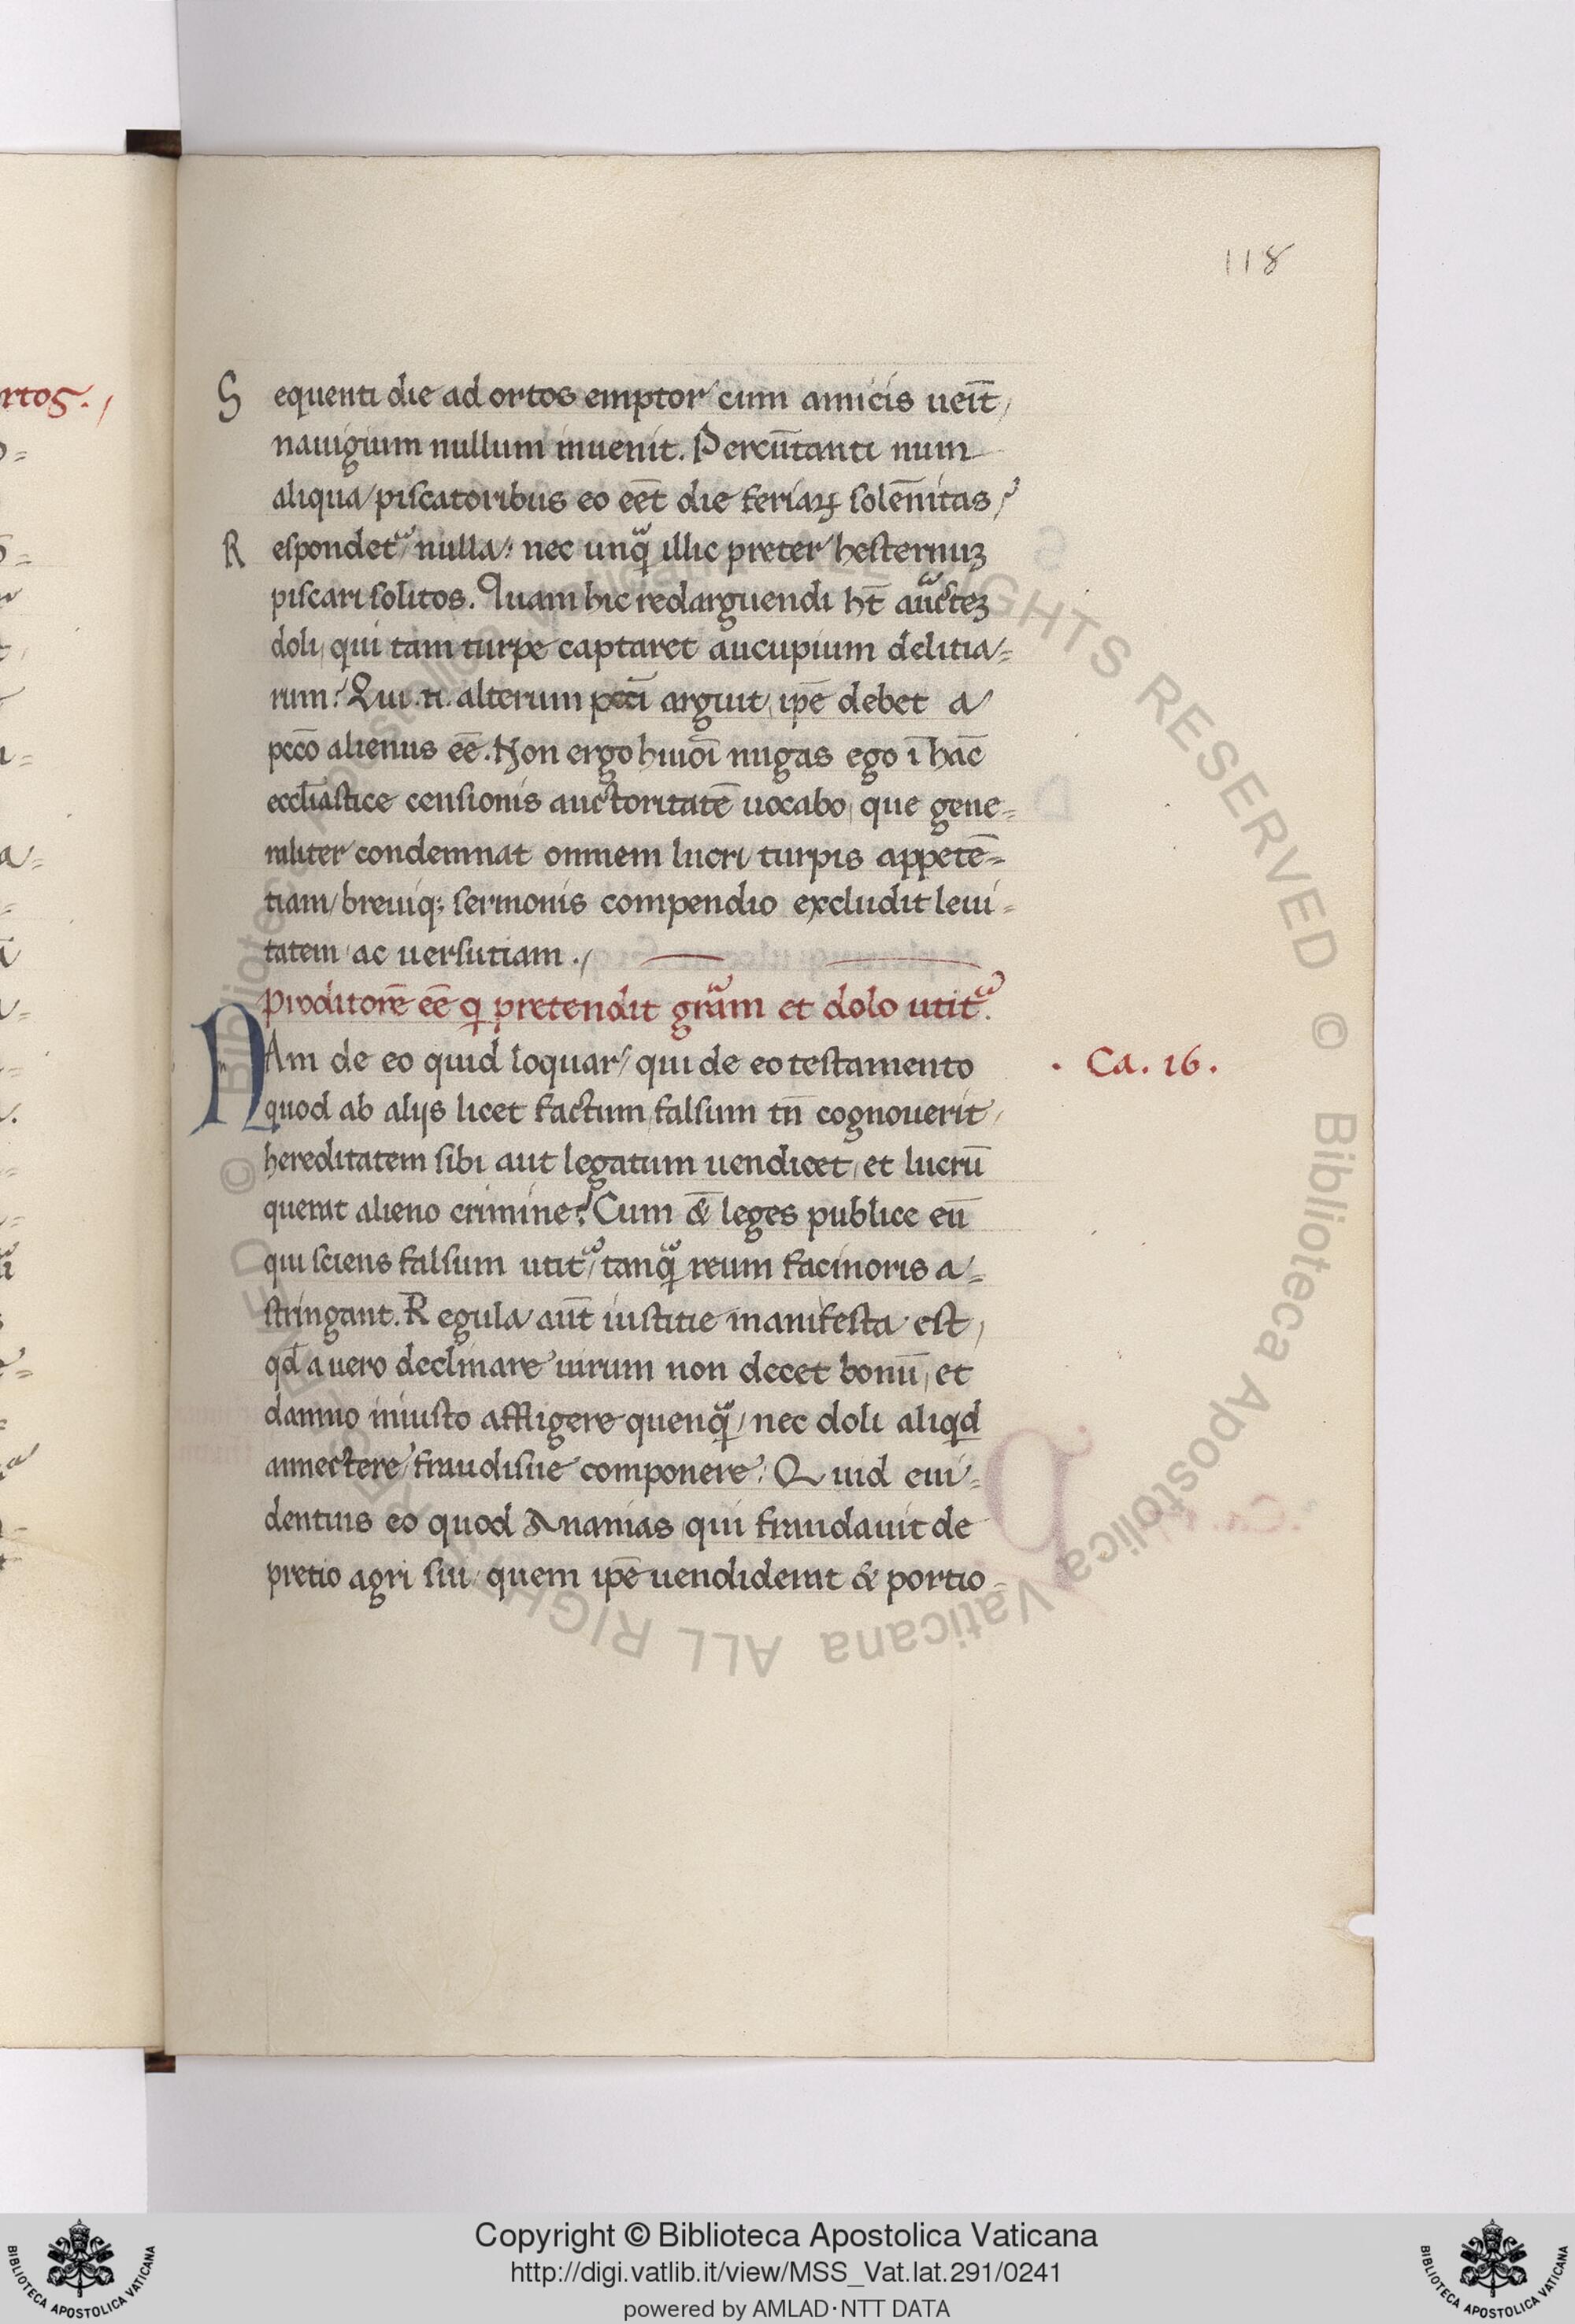 118
rtos./
Sequenti die ad ortos emptor cum amicis ueīt,
nauigium nullum inuenit. Percūtanti num
aliqua piscatoribus eo eēt die feriaꝝ solēnitas,
Respondet᷑ nulla: nec unꝗ᷑ illic preter hesternuꝫ
piscari solitos. Quam hic redarguendi ht̄ auc᷑teꝫ
doli, qui tam turpe captaret aucupium delitia=
rum? Qui .n. alterum pcc̄i arguit, ip̄e debet a
pcc̄o alienus eē. Non ergo huiōi nugas ego ī hāc
eccl̄iastice censionis auctoritatē uocabo, que gene=
raliter condemnat omnem lucri turpis appetē=
tiam/breuiq; sermonis compendio excludit leui=
tatem ac uersutiam ./
Proditorē eē q̣ pretendit gr᷑am et dolo utit᷑.
NAm de eo quid loquar/ qui de eo testamento
· Ca. 16.
quod ab alijs licet factum, falsum tn̄ cognouerit,
hereditatem sibi aut legatum uendicet, et lucrū
querat alieno crimine? Cum & leges publice eū
qui sciens falsum utit᷑/ tanꝗ᷑ reum facinoris a=
stringant. Regula aūt iustitie manifesta est,
qd̄ a uero declinare uirum non decet bonū, et
damno iniusto affligere quenꝗ᷑/ nec doli aliqd
annectere fraudisue componere? Quid eui=
dentius eo quod Ananias qui fraudauit de
pretio agri sui quem ip̄e uendiderat & portio=
© Biblioteca Apostolica Vaticana ALL RIGHTS RESERVED © Biblioteca Apostolica Vaticana ALL RIGHTS RESERVED
Copyright © Biblioteca Apostolica Vaticana
http://digi.vatlib.it/view/MSS_Vat.lat.291/0241
powered by AMLAD·NTT DATA
BIBLIOTECA APOSTOLICA VATICANA
BIBLIOTECA APOSTOLICA VATICANA